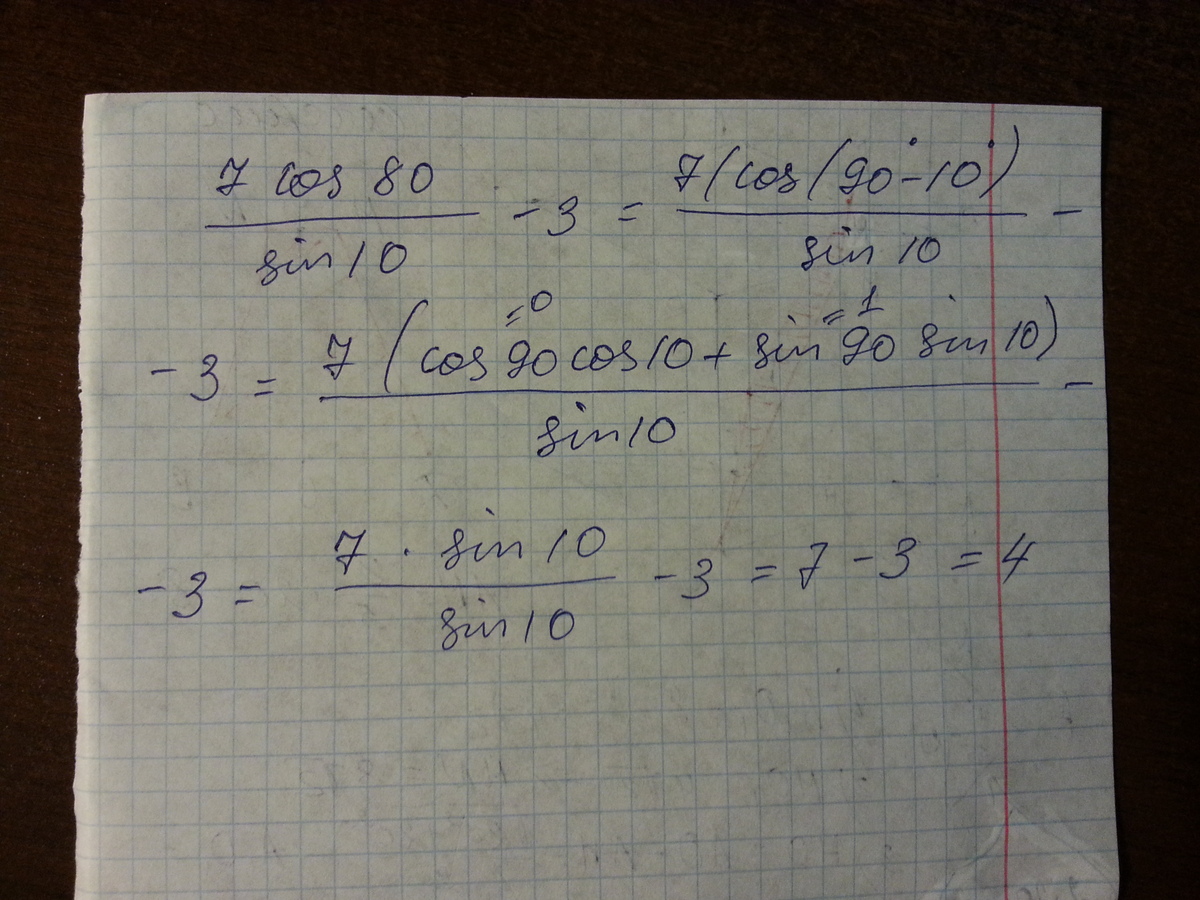 7 cos 80 / sin 10 - 3 = 7(cos(90° - 10°) / sin 10 -
- 3 = 7 (cos 90 cos 10 + sin 90 sin 10) / sin 10 - =0 =1
- 3 = 7 · sin 10 / sin 10 - 3 = 7 - 3 = 4